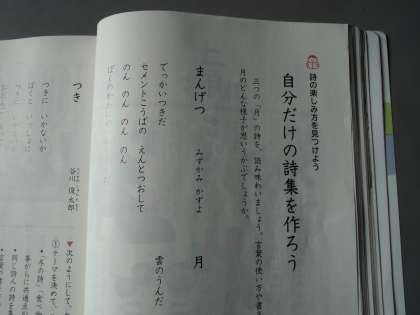 詩の楽しみ方を見つけよう
自分だけの詩集を作ろう
三つの「月」の詩を、読み味わいましょう。言葉の使い方や書き
月のどんな様子が思いうかぶでしょうか。
まんげつ
みずかみ かずよ
でっかいつきだ
セメントこうばの えんとつおして
のん のん のん のん
月
雲のうんだ
つき
谷川 俊太郎
つきに いかないか
ぼくと いっしょに
つきに
▼次のようにして、
①テーマを決めて、
「冬の詩」「食べ物
事がらに共通点
同じ詩人の詩を